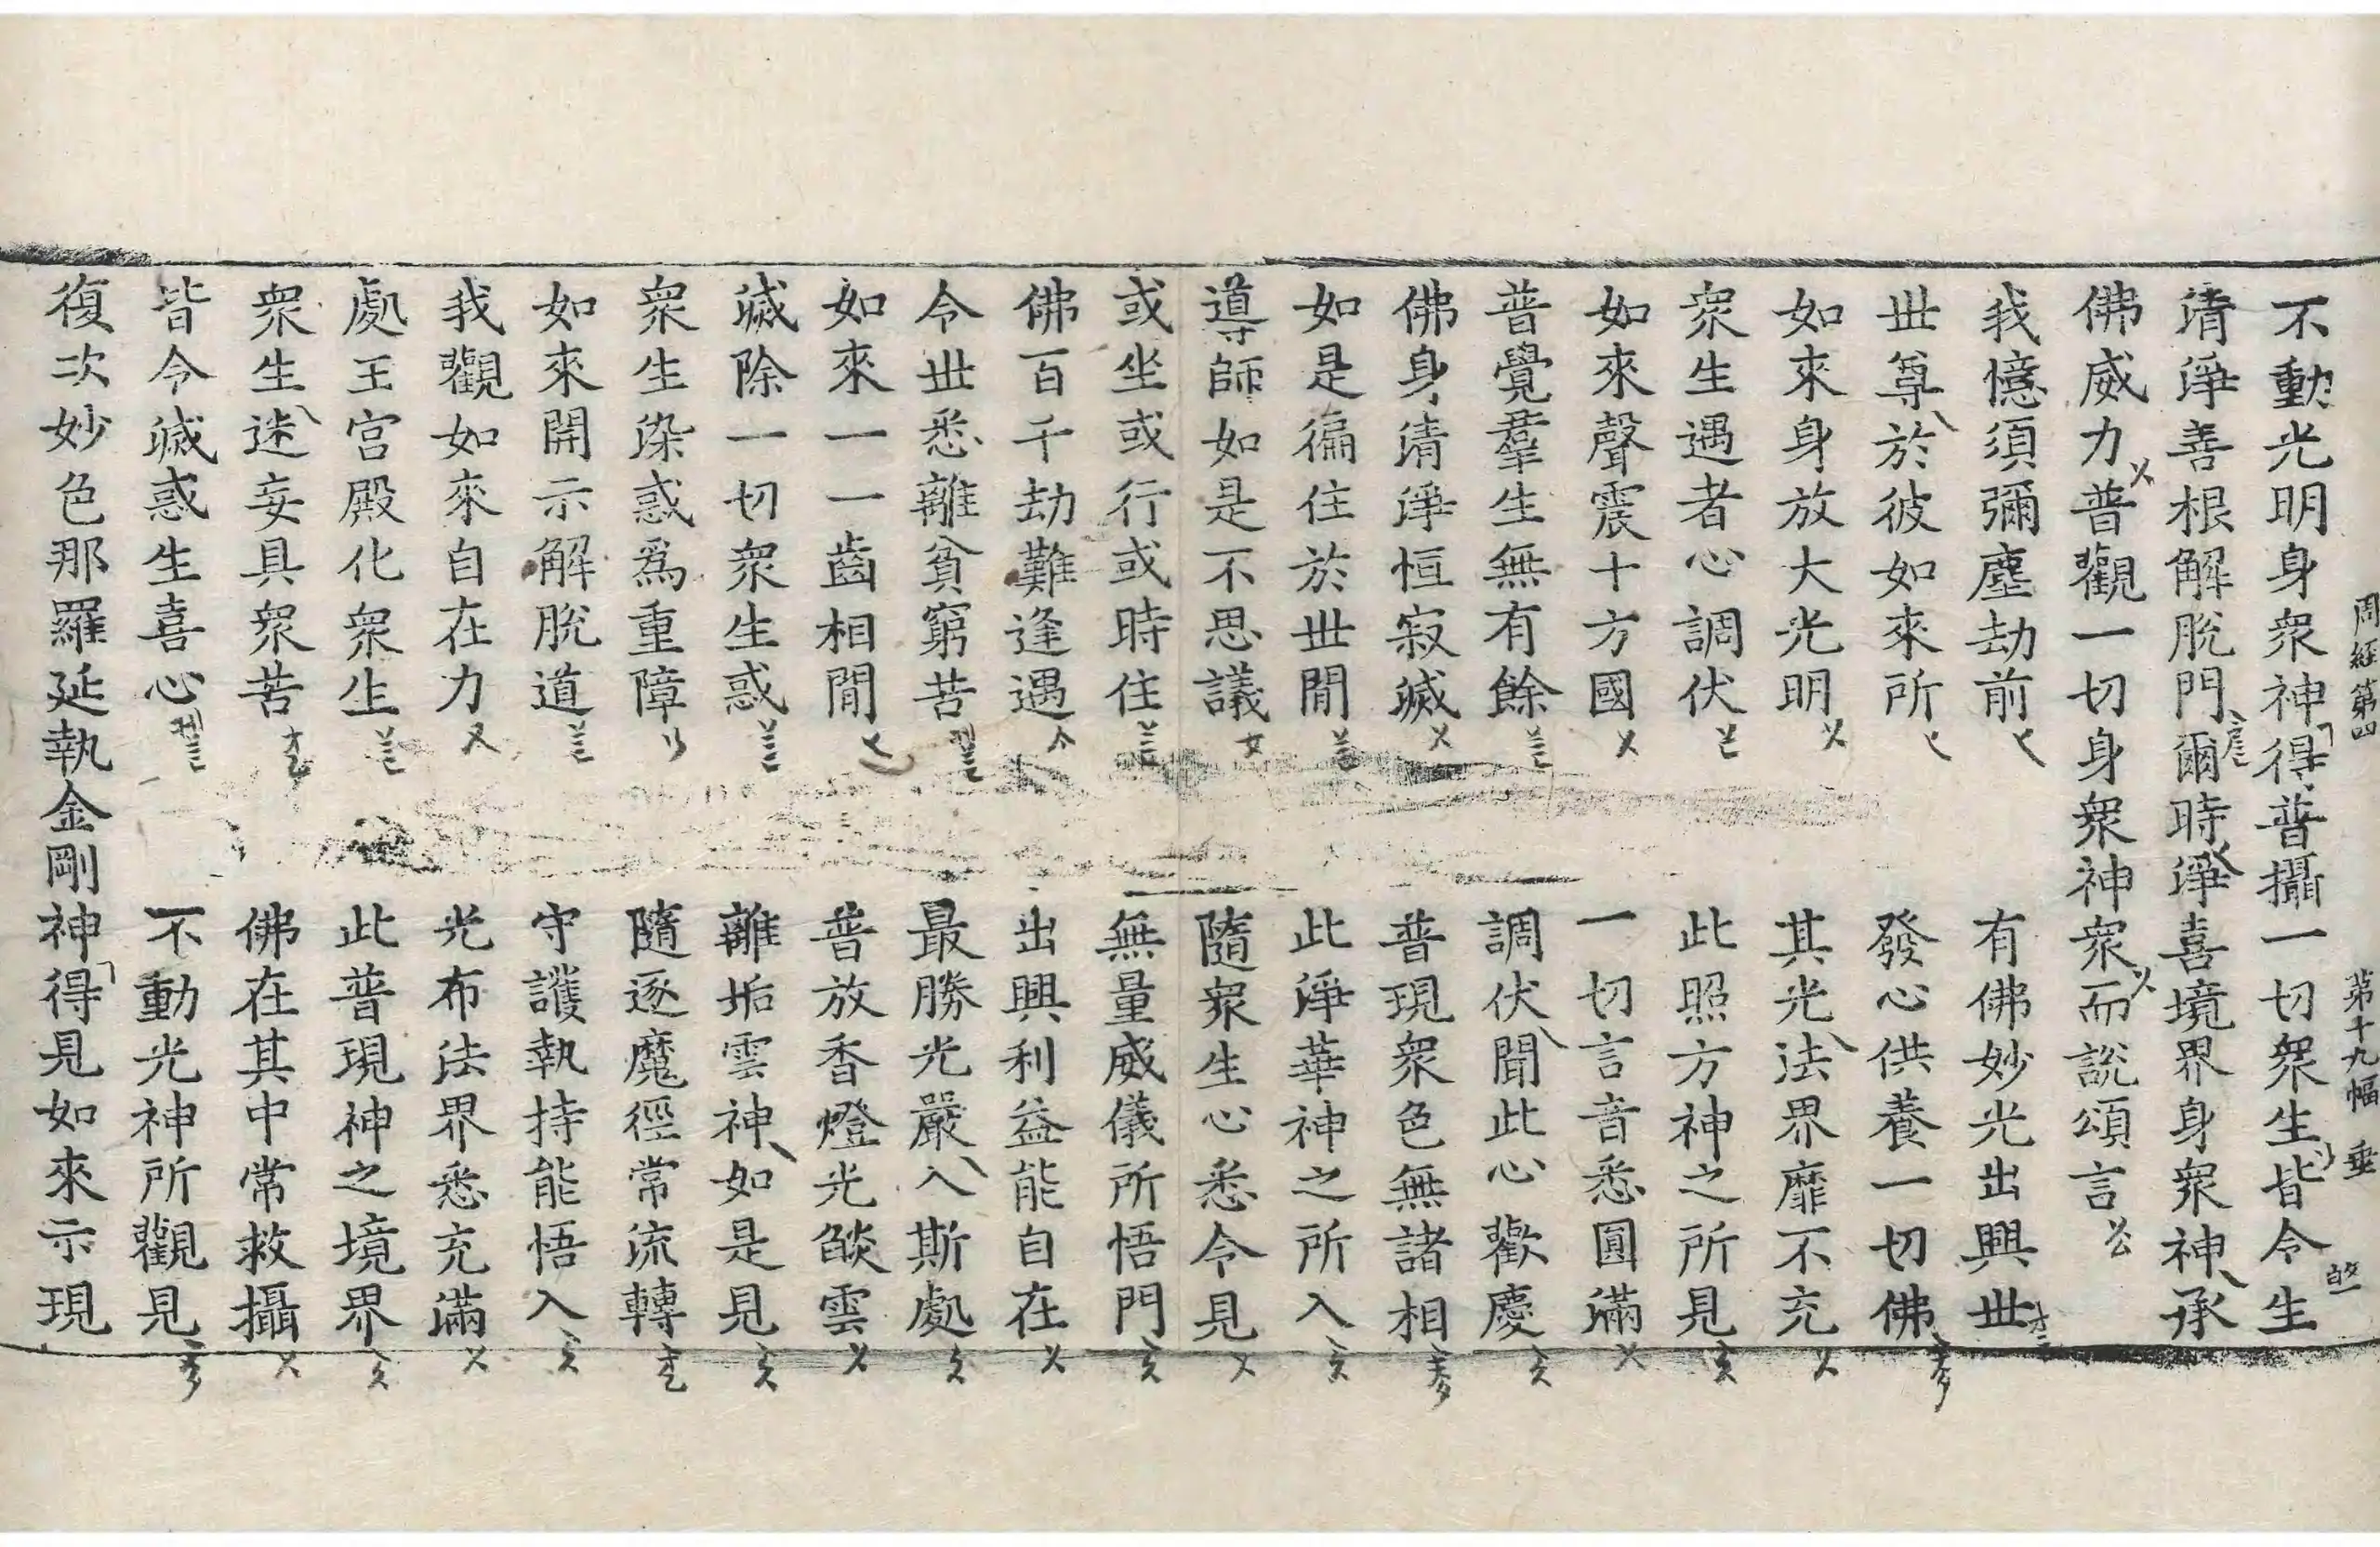 周經第四 第十九幅 垂
不動光明身衆神得普攝一切衆生皆令生
清淨善根解脫門爾時淨喜境界身衆神承
佛威力普觀一切身衆神衆而說頌言
我憶須彌塵劫前 有佛妙光出興世
世尊於彼如來所 發心供養一切佛
如來身放大光明 其光法界靡不充
衆生遇者心調伏 此照方神之所見
如來聲震十方國 一切言音悉圓滿
普覺羣生無有餘 調伏聞此心歡慶
佛身清淨恒寂滅 普現衆色無諸相
如是徧住於世間 此淨華神之所入
導師如是不思議 隨衆生心悉令見
或坐或行或時住 無量威儀所悟門
佛百千劫難逢遇 出興利益能自在
令世悉離貧窮苦 最勝光嚴入斯處
如來一一齒相間 普放香燈光燄雲
滅除一切衆生惑 離垢雲神如是見
衆生染惑爲重障 隨逐魔徑常流轉
如來開示解脫道 守護執持能悟入
我觀如來自在力 光布法界悉充滿
處王宮殿化衆生 此普現神之境界
衆生迷妄具衆苦 佛在其中常救攝
皆令滅惑生喜心 不動光神所觀見
復次妙色那羅延執金剛神得見如來示現